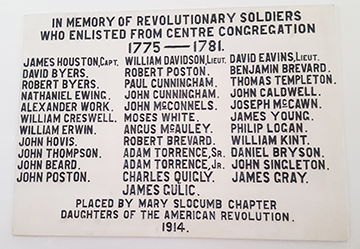 IN MEMORY OF REVOLUTIONARY SOLDIERS
WHO ENLISTED FROM CENTRE CONGREGATION
1775 — 1781.
JAMES HOUSTON, CAPT. WILLIAM DAVIDSON, LIEUT. DAVID EAVINS, LIEUT.
DAVID BYERS. ROBERT POSTON. BENJAMIN BREVARD.
ROBERT BYERS. PAUL CUNNINGHAM. THOMAS TEMPLETON.
NATHANIEL EWING. JOHN CUNNINGHAM. JOHN CALDWELL.
ALEXANDER WORK. JOHN McCONNELS. JOSEPH McCAWN.
WILLIAM CRESWELL. MOSES WHITE. JAMES YOUNG.
WILLIAM ERWIN. ANGUS McAULEY. PHILIP LOGAN.
JOHN HOVIS. ROBERT BREVARD. WILLIAM KINT.
JOHN THOMPSON. ADAM TORRENCE, SR. DANIEL BRYSON.
JOHN BEARD. ADAM TORRENCE, JR. JOHN SINGLETON.
JOHN POSTON. CHARLES QUIGLY. JAMES GRAY.
JAMES GULIC.
PLACED BY MARY SLOCUMB CHAPTER
DAUGHTERS OF THE AMERICAN REVOLUTION.
1914.